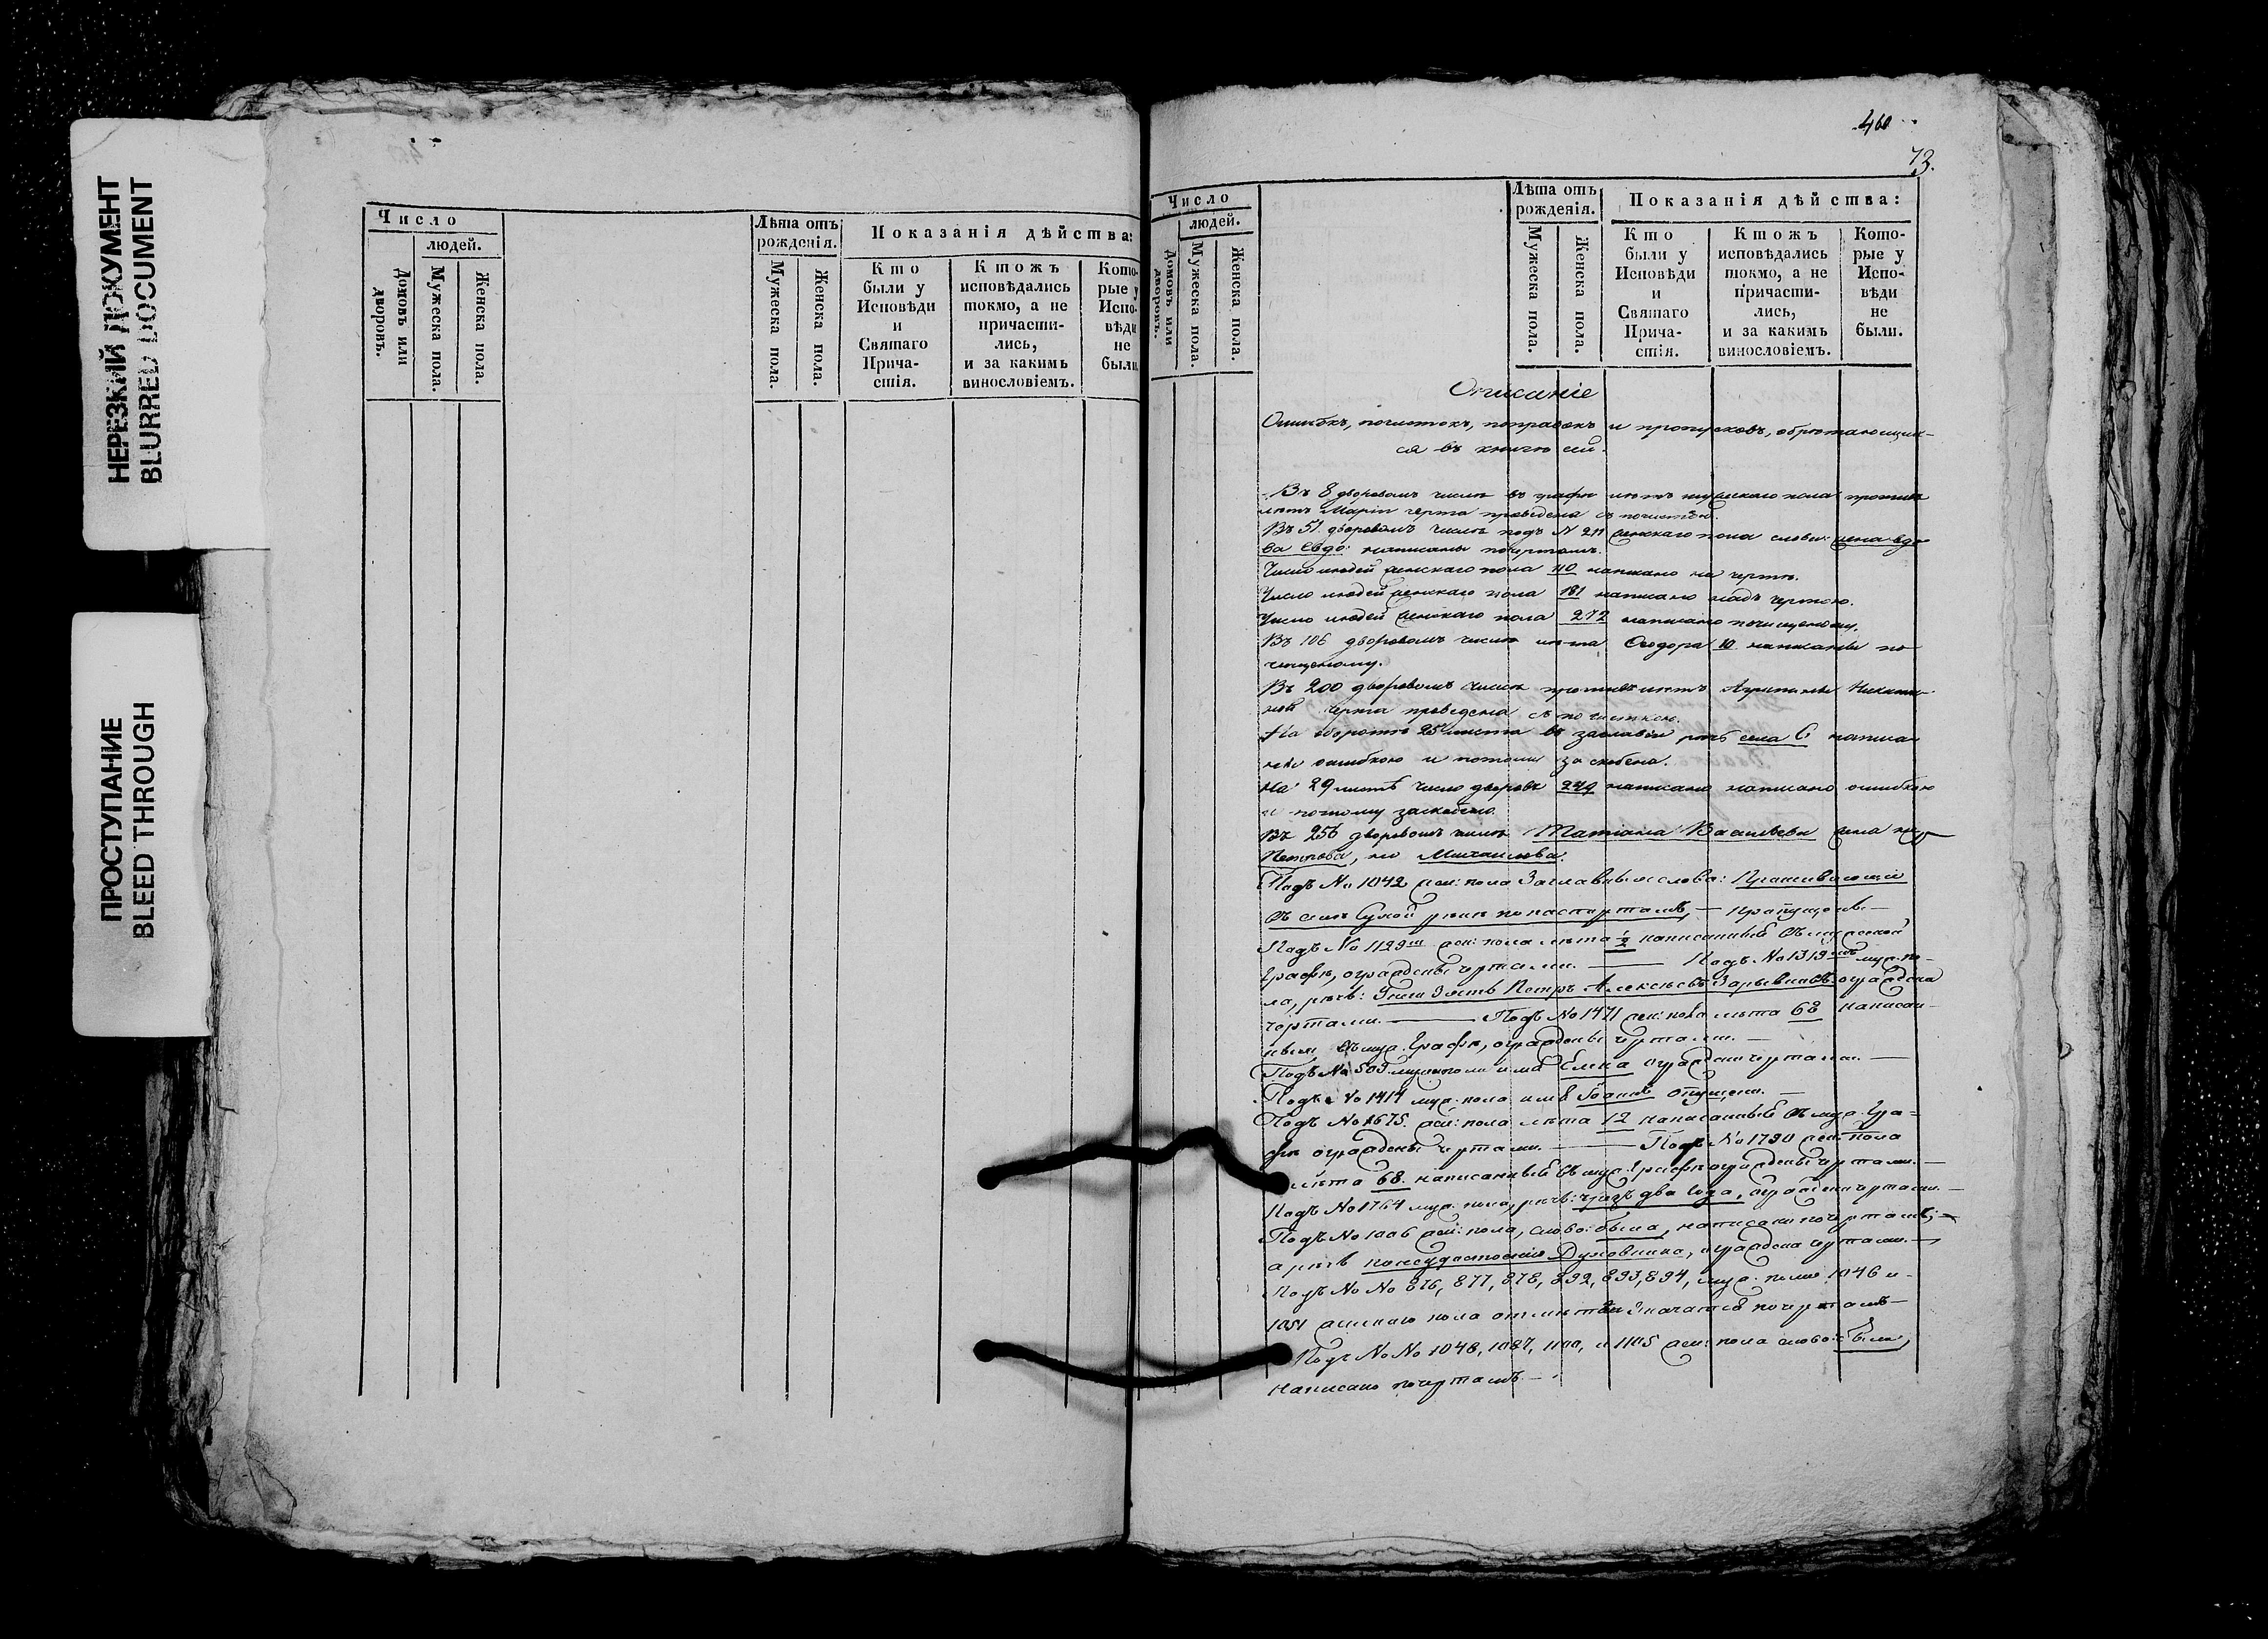 НЕРЕЗКИЙ ДОКУМЕНТ
BLURRED DOCUMENT
ПРОСТУПАНИЕ
BLEED THROUGH
Число
людей.
Домовъ или дворовъ.
Мужеска пола.
Женска пола.
Лѣта отъ рожденія.
Мужеска пола.
Женска пола.
Показанія дѣйства:
Кто были у Исповѣди и Святаго Причастія.
Ктожъ исповѣдались токмо, а не причастились, и за какимъ винословіемъ.
Которые у Исповѣди не были.
460
73.
Число
людей.
Домовъ или дворовъ.
Мужеска пола.
Женска пола.
Лѣта отъ рожденія.
Мужеска пола.
Женска пола.
Показанія дѣйства:
Кто были у Исповѣди и Святаго Причастія.
Ктожъ исповѣдались токмо, а не причастились, и за какимъ винословіемъ.
Которые у Исповѣди не были.
Описаніе
Ошибокъ, почистокъ, поправокъ и пропусковъ, обрѣтающих-
ся въ книгѣ сей.
Въ 8 дворовомъ числѣ въ графѣ лѣтъ мужескаго пола противъ
лѣтъ Маріи черта проведена съ почисткою.
Въ 51 дворовомъ числѣ подъ N 211 женскаго пола слова: жена вдо
ва Евдо: написаны по чертамъ.
Число людей женскаго пола 110 написано на чертѣ.
Число людей женскаго пола 181 написано надъ чертою.
Число людей женскаго пола 272 написано по чищеному.
Въ 106 дворовомъ числѣ лѣта Ѳеодора 10 написаны по
чищеному.
Въ 200 дворовомъ числѣ противъ лѣтъ Агрипины Никити-
ной черта проведена съ почисткою.
На оборотѣ 25 листа въ заглавіи рѣчь села С написа
на ошибкою и потому заскоблена.
На 29 листѣ число дворовъ 249 написано написано ошибкою
и потому заскоблено.
Въ 256 дворовомъ числѣ Татіана Васильева жена не
Петрова, но Михаилова.
Подъ No 1042 жен: пола Заглавныя слова: Проживающіе
въ селѣ Сухой рѣкѣ по паспортамъ, — пропущены. —
Подъ No 1129 жен: пола лѣта ½ написанныя въ мужеской
Графѣ, ограждены чертами. — Подъ No 1319 муж. по-
ла, рѣчь: Зять Петръ Алексѣевъ ограждена
чертами. — Подъ No 1471 жен: пола лѣта 68 написан-
ныя въ муж. Графѣ, ограждены чертами. —
Подъ No 503 муж. пола имя Елена ограждено чертами. —
Подъ No 1414 муж. пола имя Іоаннъ опущено. —
Подъ No 1675. жен: пола лѣта 12 написанныя въ муж. Гра-
фѣ ограждены чертами. — Подъ No 1790 жен: пола
лѣта 68. написанныя въ муж. Графѣ ограждены чертами. —
Подъ No 1764 муж. пола, рѣчь: чрезъ два года, ограждена чертами. —
Подъ No 1006 жен: пола, слово: была, написано по чертамъ; —
а рѣчь Духовника, ограждена чертами. —
Подъ No No 876, 877, 878, 892, 893, 894, муж. пола 1046 и
1051 женскаго пола отмѣтки значатся по чертамъ —
Подъ No No 1048, 1087, 1100, и 1105 жен: пола слово: была,
написано по чертамъ —